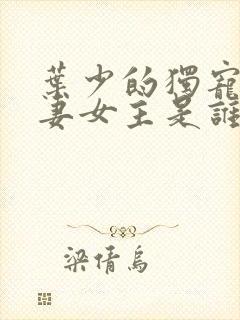 葉少的獨寵
妻女主是誰
梁倩烏